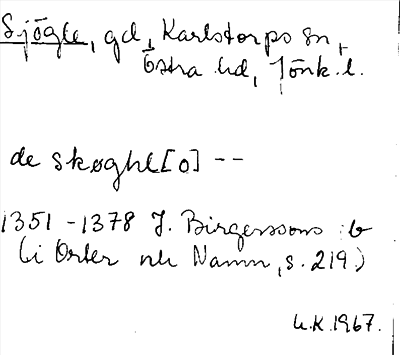 Sjögle, gd, Karlstorps sn,
Östra hd, Jönk. l.
de skøghl[o] --
1351 - 1378 J. Birgerssons :b
(i Orter och Namn, s. 219)
U.K. 1967.